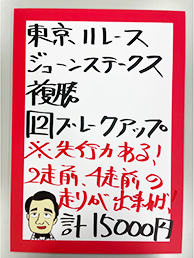 東京11レース
ジューンステークス
複勝
12 ブレークアップ
※先行力ある！
2走前、4走前の
走りが出来れば！
計15000円